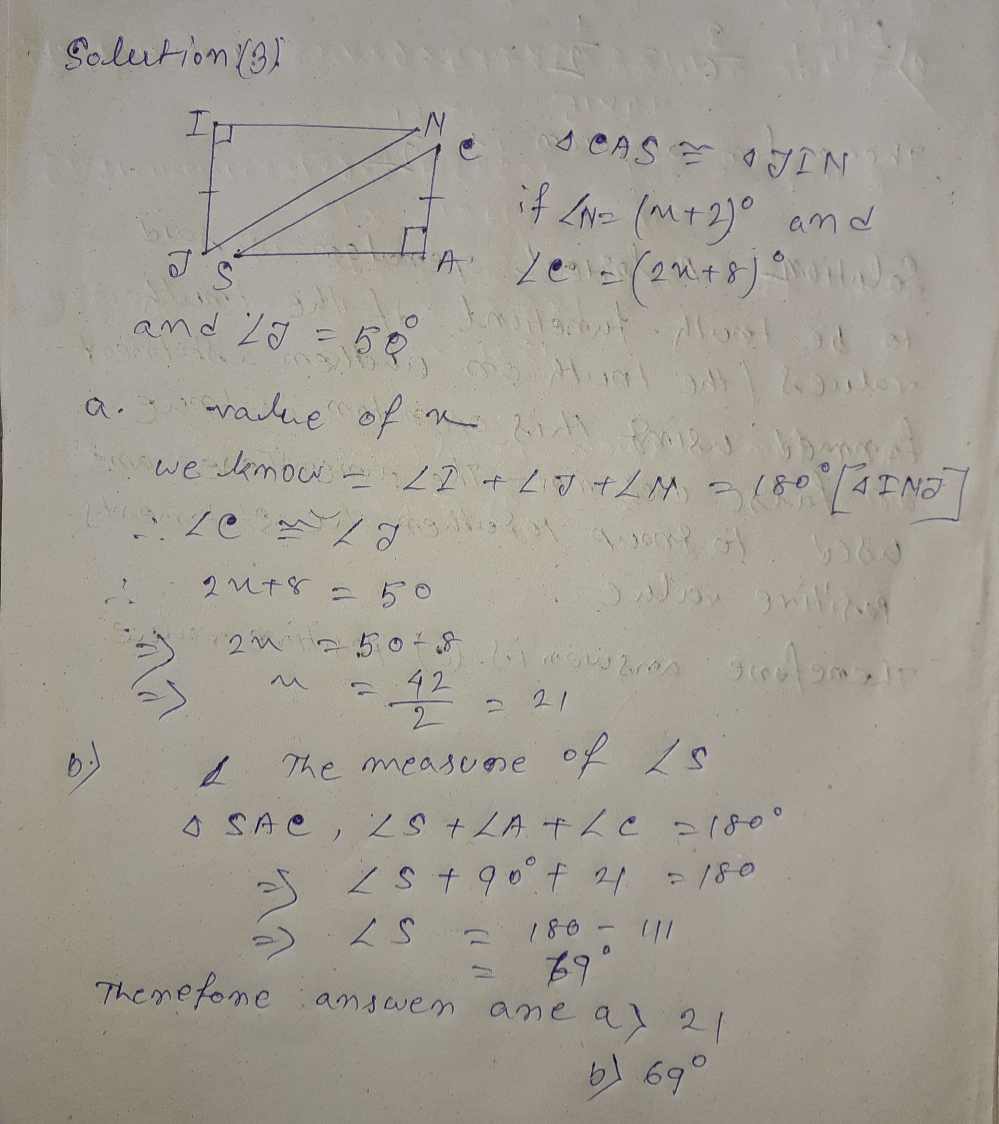 Solution (3)
I N C
J S A
△CAS ≅ △JIN
if ∠N = (x+2)° and
∠C = (2x+8)°
and ∠J = 50°
a. value of x
we know = ∠I + ∠J + ∠N = 180° [△INJ]
∴ ∠C ≅ ∠J
∴ 2x+8 = 50
⇒ 2x = 50-8
⇒ x = 42/2 = 21
b.) The measure of ∠S
△SAC, ∠S + ∠A + ∠C = 180°
⇒ ∠S + 90° + 21 = 180
⇒ ∠S = 180 - 111
= 69°
Therefore answer are a) 21
b) 69°